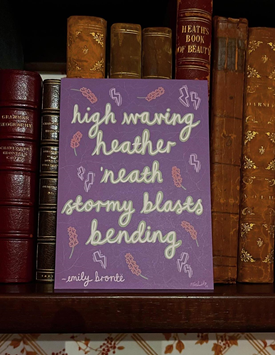 HEATH'S
BOOK
OF BEAUTY
high waving
heather
'neath
stormy blasts
bending
-emily brontë